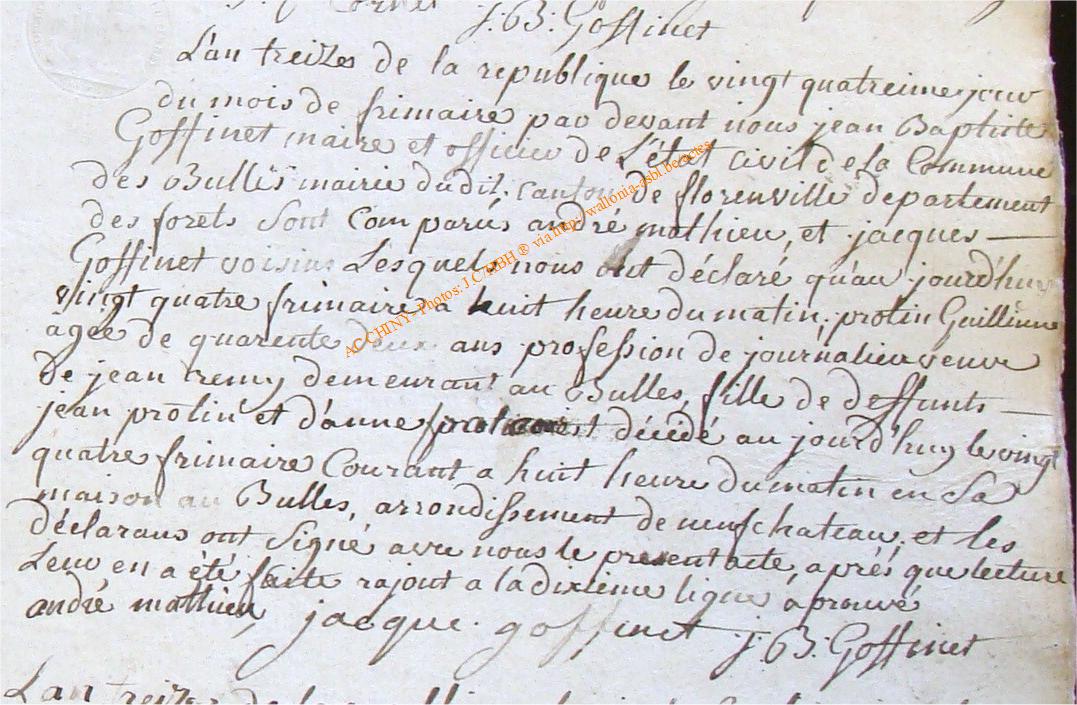 Cornet
J: B: Goffinet
L'an treizes de la republique le vingt quatreime jour
du mois de frimaire par devant nous jean Baptiste
Goffinet maire et officier de L'état civil de la Commune
des Bulles mairie dudit canton de florenville departement
des forets sont comparus andré mathieu, et jacques —
Goffinet voisins Lesquels nous ont déclaré qu'au jourd'huy
vingt quatre frimaire a huit heure du matin, protin Guillieme
âgée de quarente deux ans profession de journalier veuve
de jean remy demeurant au Bulles, fille de deffunts —
jean protin et d'anne décédé au jourd'huy le vingt
quatre frimaire Courant a huit heure du matin en sa
maison au Bulles, arrondissement de neufchateau, et les
déclarans ont signé avec nous le present acte, aprés que lecture
Leur en a été faite rajout a la dixieme ligne aprouvé
andré mathieu, jacque goffinet J: B: Goffinet
L'an treizes de la
AC CHINY - Photos: J.C. MBH ® via http: wallonia-asbl.be/actes